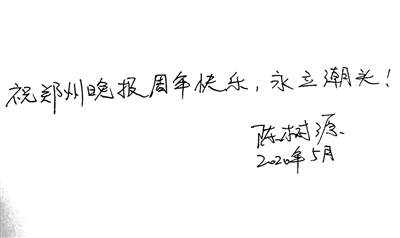 祝郑州晚报周年快乐，永立潮头！
陈树源
2020年5月